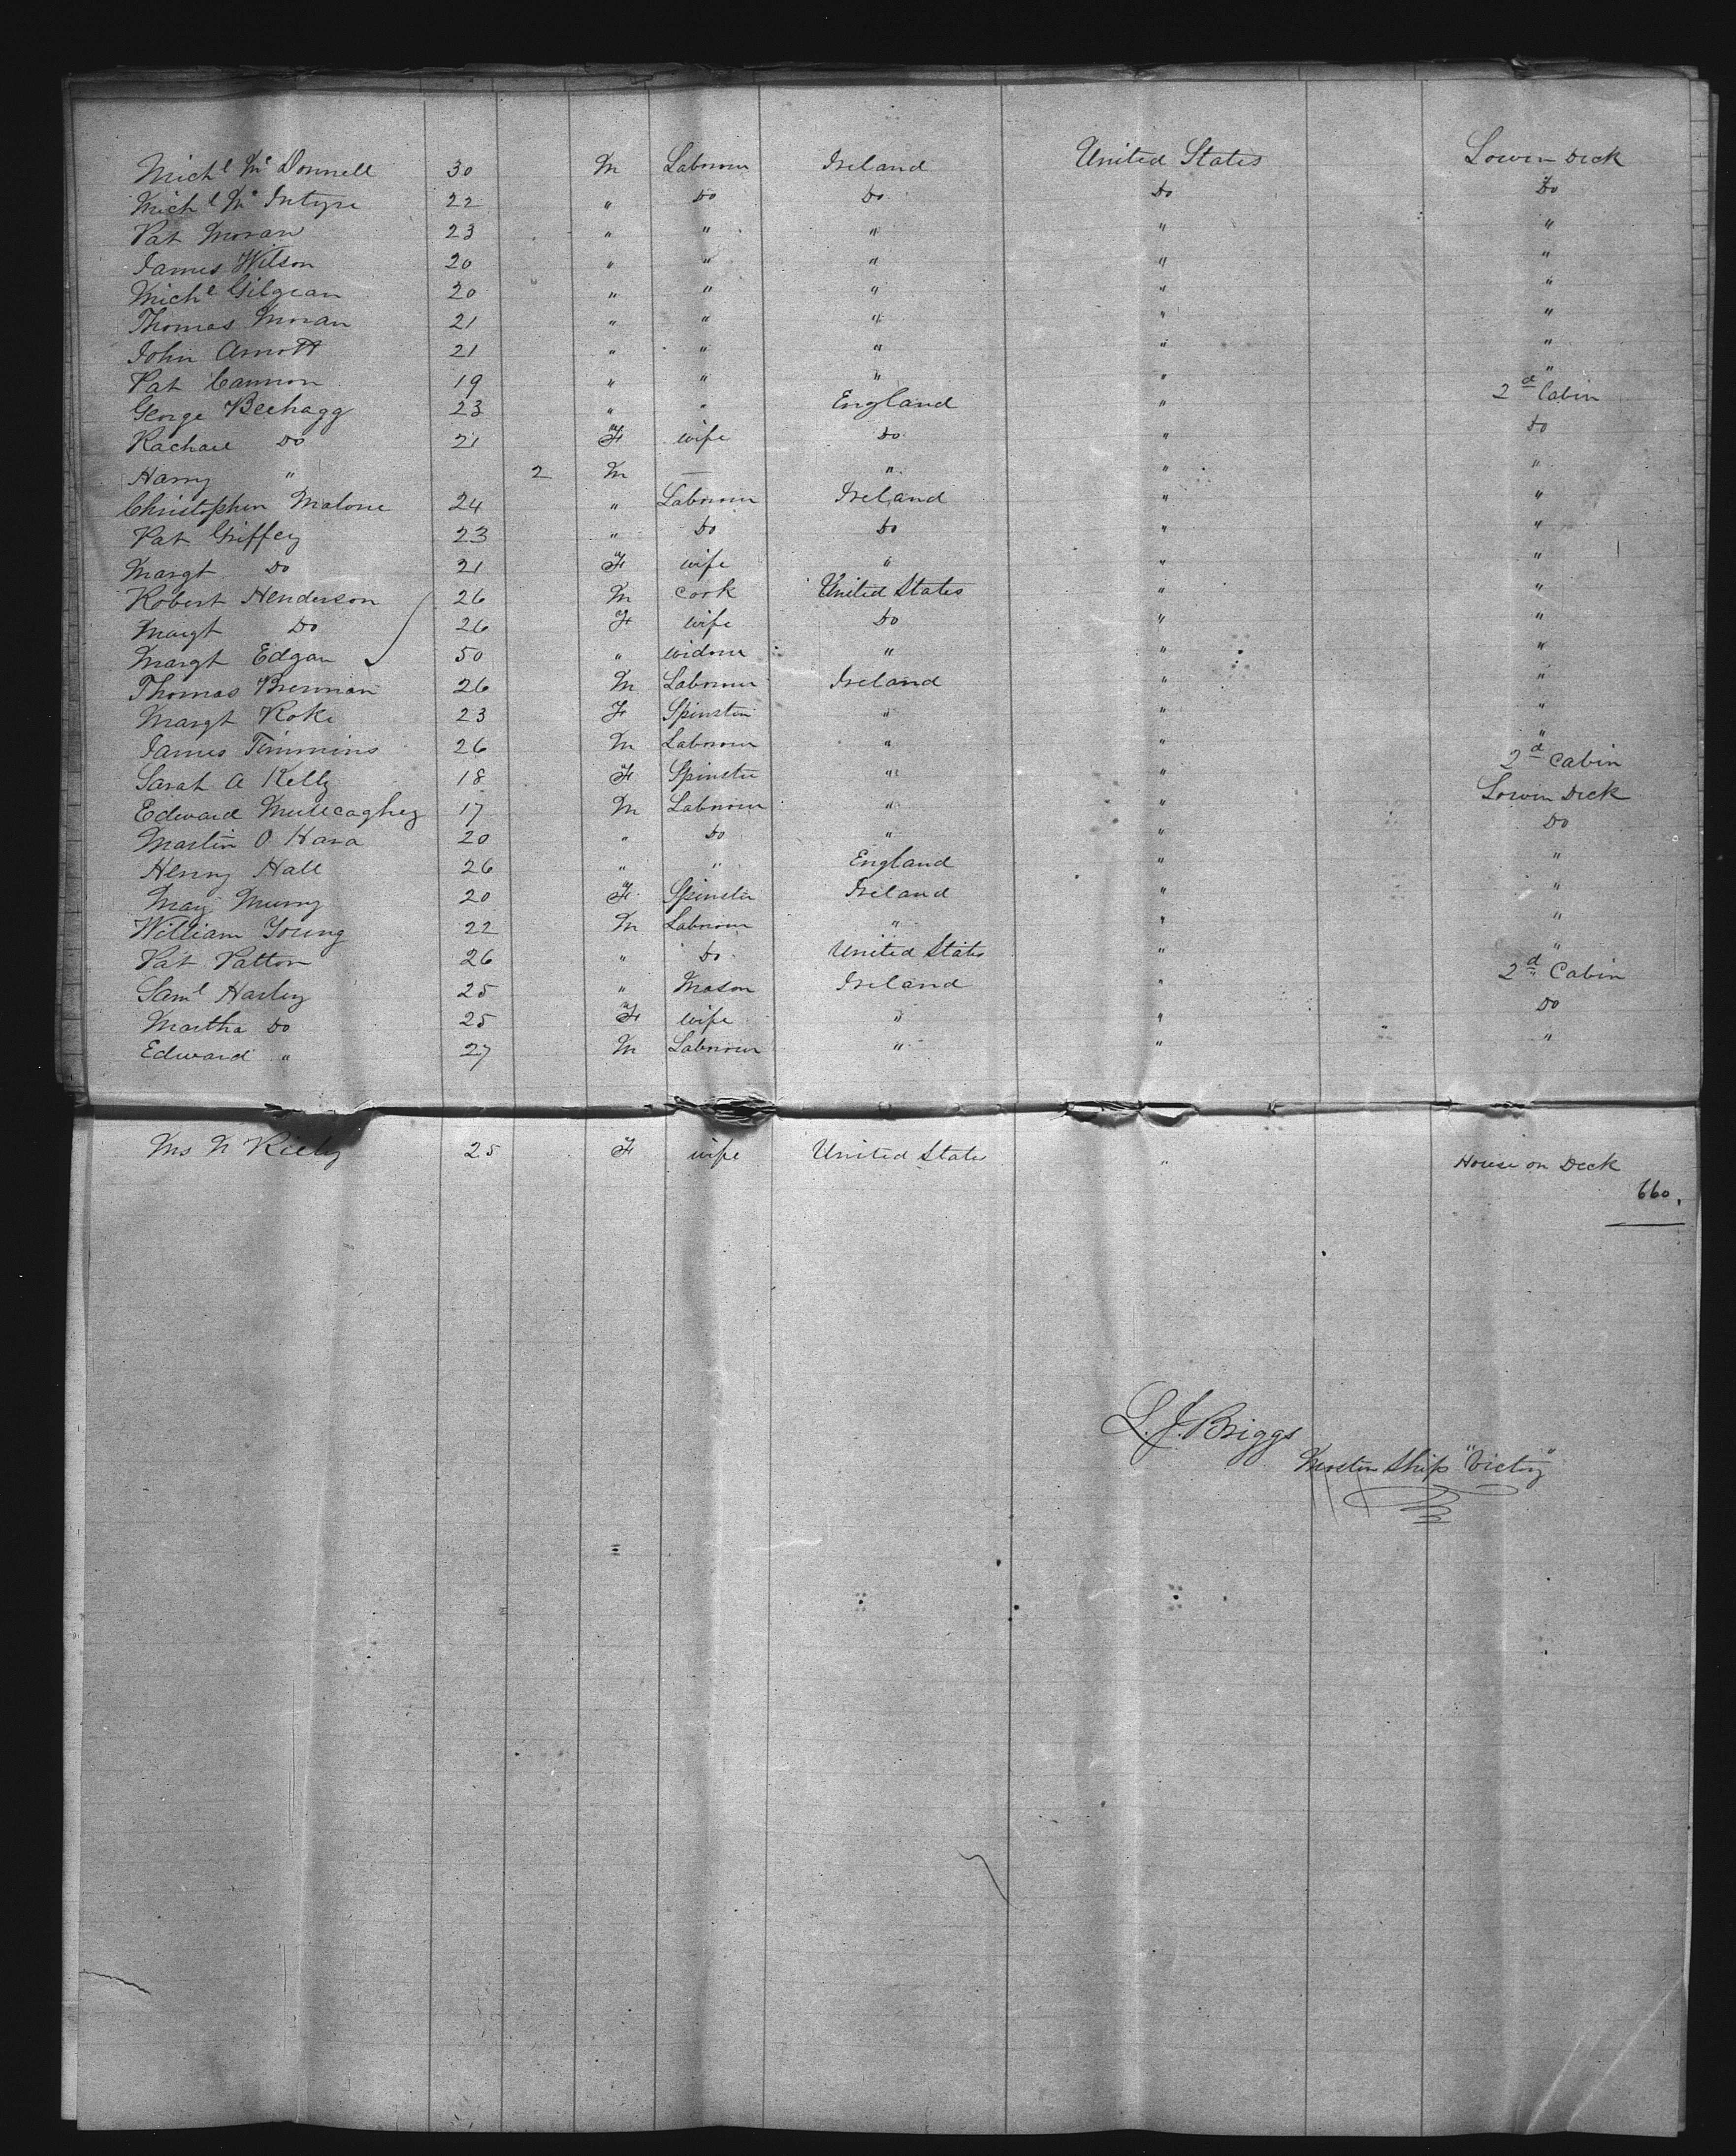 Michl Mc Donnell 30 M Labourer Ireland United States Lower Deck
Michl Mc Intyre 22 " Do Do Do Do
Pat Moran 23 " " " " "
James Wilson 20 " " " " "
Michl Gilgean 20 " " " " "
Thomas Moran 21 " " " " "
John Arnott 21 " " " " "
Pat Cannon 19 " " " " "
George Beehagg 23 " " England " 2d Cabin
Rachael Do 21 F wife Do " Do
Harry " 2 M — " " "
Christopher Malone 24 " Labourer Ireland " "
Pat Griffey 23 " Do Do " "
Margt Do 21 F wife " " "
Robert Henderson 26 M Cook United States " "
Margt Do 26 F wife Do " "
Margt Edgar 50 " widow " " "
Thomas Brennan 26 M Labourer Ireland " "
Margt Roke 23 F Spinster " " "
James Timmins 26 M Labourer " " "
Sarah A Kelly 18 F Spinster " " 2d Cabin
Edward Mulleaghey 17 M Labourer " " Lower Deck
Martin O Hara 20 " Do " " Do
Henry Hall 26 " " England " "
Mary Murry 20 F Spinster Ireland " "
William Young 22 M Labourer " " "
Pat Patton 26 " Do United States " "
Saml Harley 25 " Mason Ireland " 2d Cabin
Martha Do 25 F wife " " Do
Edward " 27 M Labourer " " "
Mrs N Kelly 25 F wife United States " House on Deck
660.
L. J. Briggs
Master Ship "Victory"